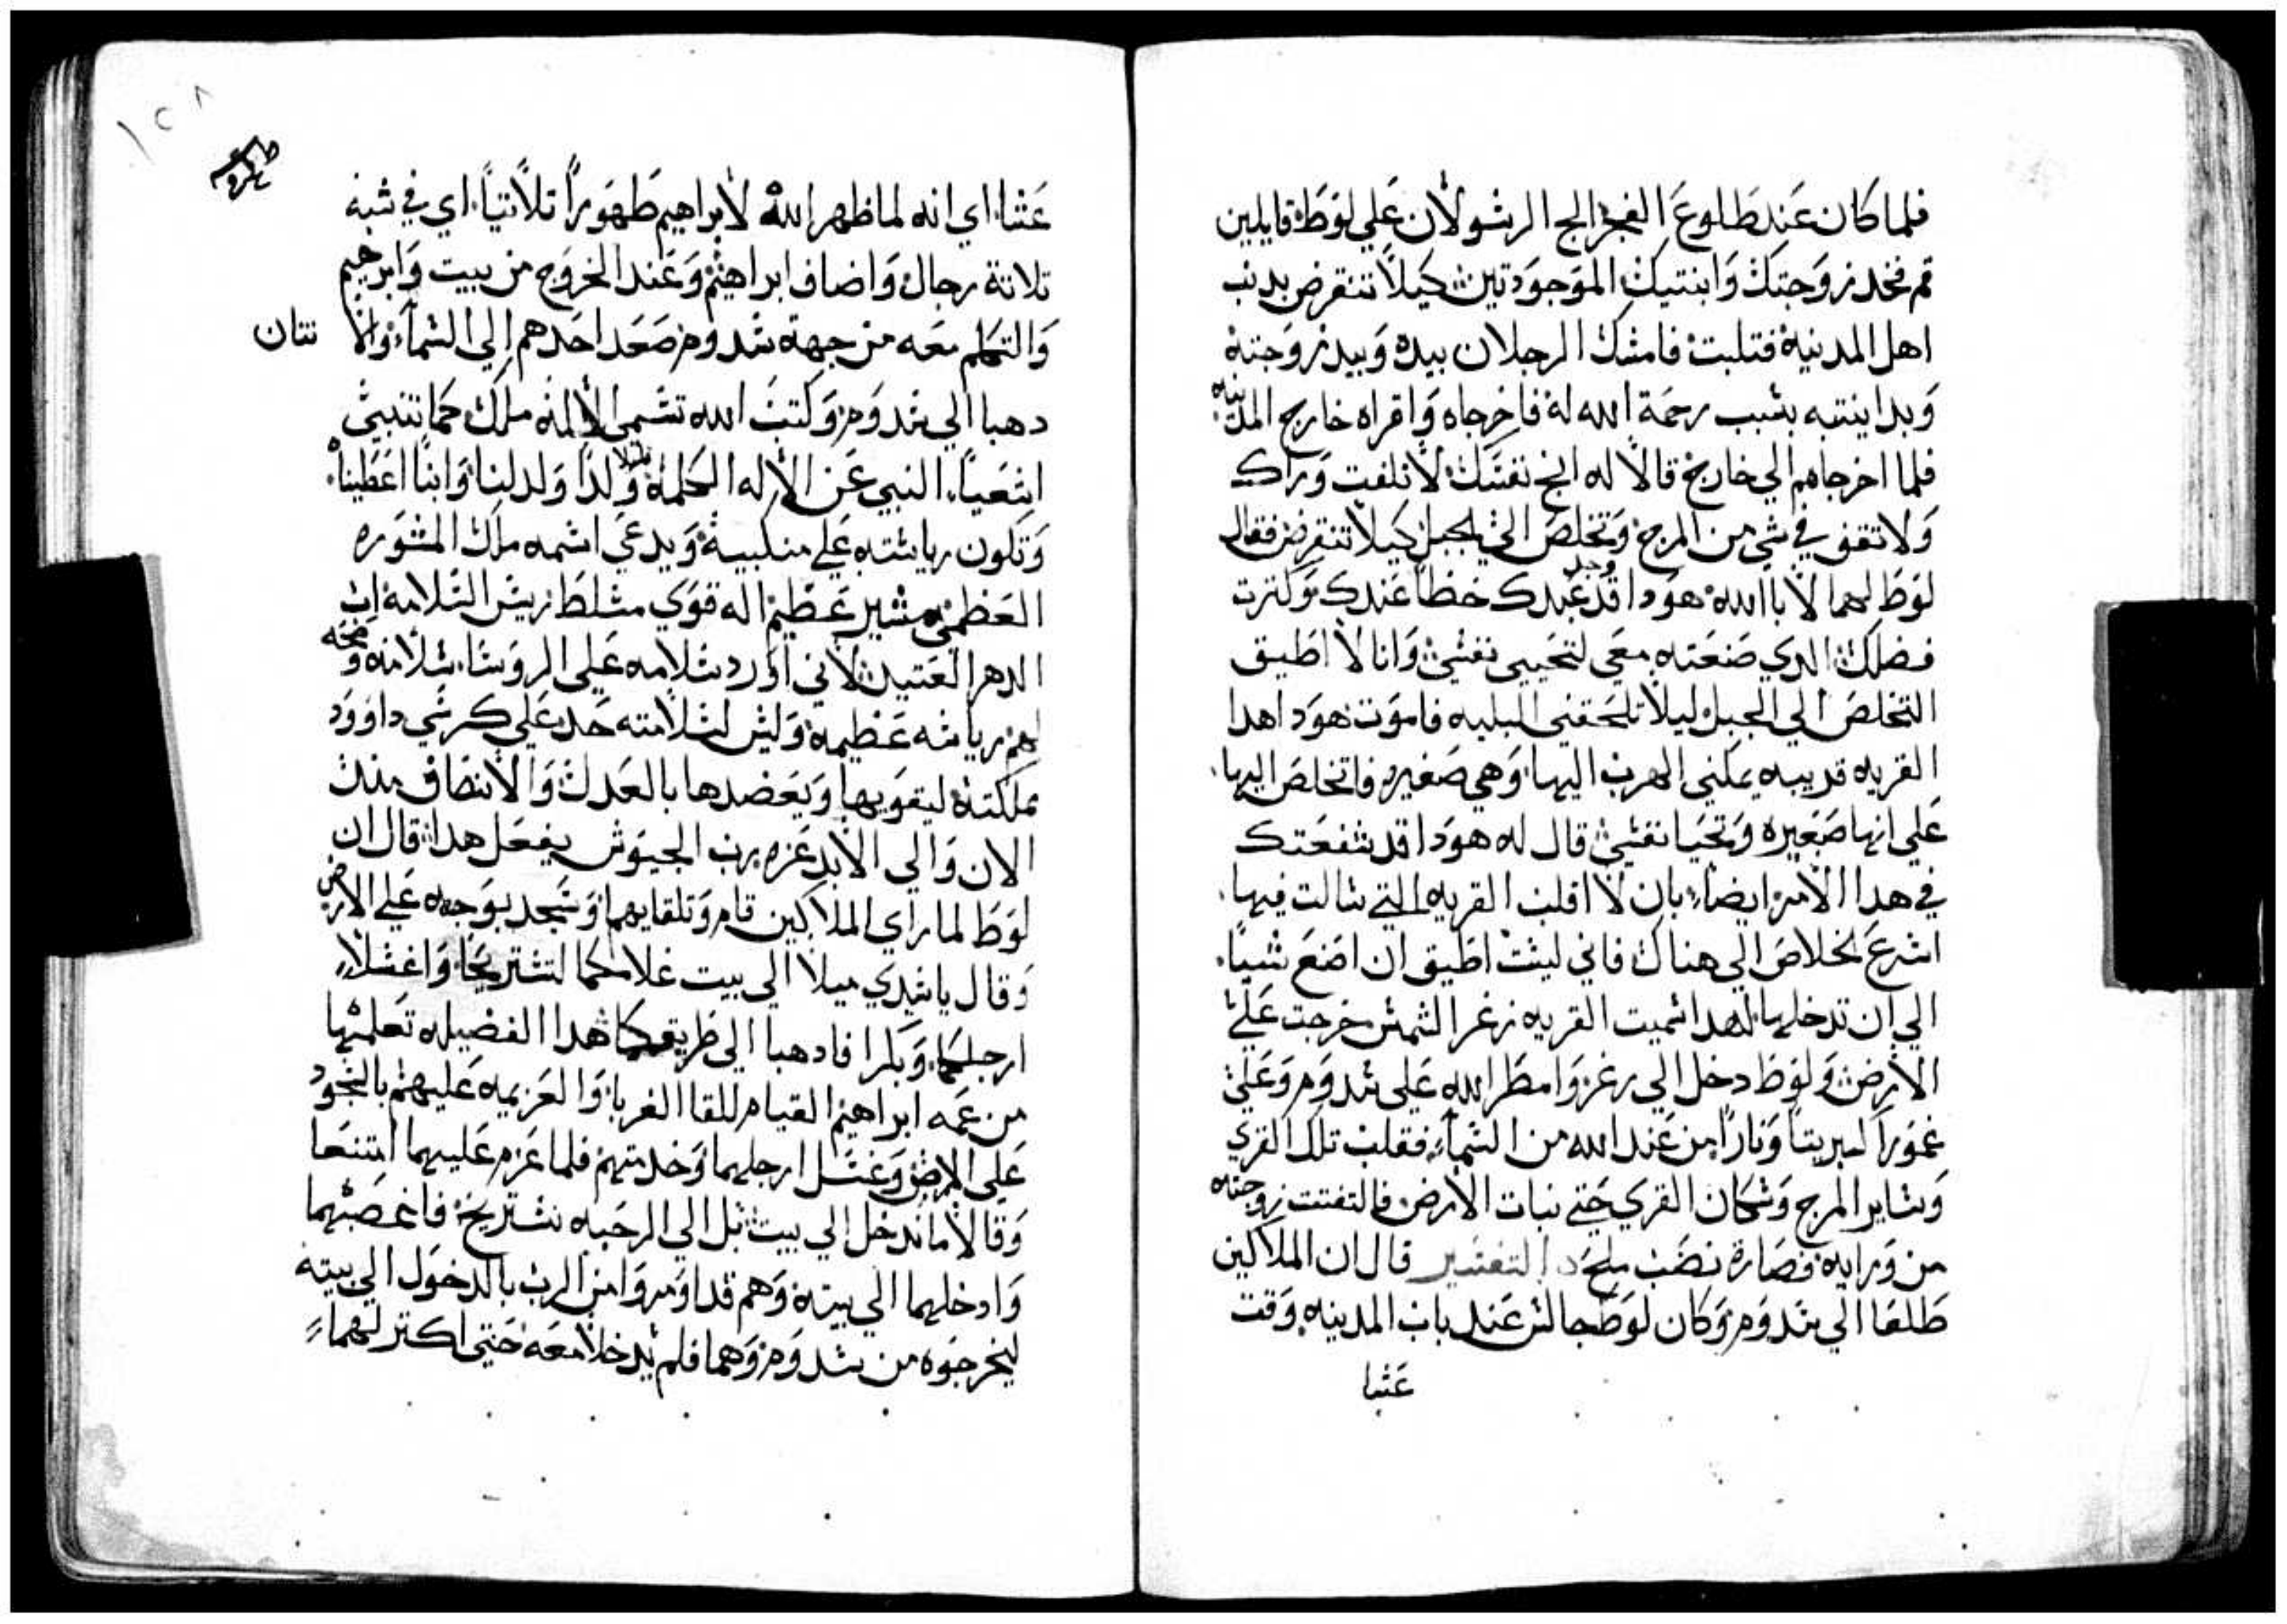 فلما كان عند طلوع الفجر الج الرسولان علي لوط قايلين
قم فخد زوجتك وابنتيك الموجودتين كيلا تنقرض بدنب
اهل المدينه فتلبت فامسك الرجلان بيده وبيد زوجته
وبد ابنتيه بسبب رحمة الله له فاخرجاه واقراه خارج المدينه
فلما اخرجاهم الي خارج قالا له انج نفسك لا تلفت وراك
ولا تقف في شي من المرج وتخلص الي الجبل كيلا تنقرض فقال
لوط لهما لا يا الله هودا قد وجد عبدك حظا عندك وكترت
فضلك الدي صنعته معي لتحيي نفسي وانا لا اطيق
التخلص الي الجبل ليلا تلحقني البليه فاموت هودا هدا
القريه قريبه يمكني الهرب اليها وهي صغيره فاتخلص اليها
علي انها صغيره وتحيا نفسي قال له هودا قد شفعتك
في هدا الامر ايضا بان لا اقلب القريه التي سالت فيها
اسرع لخلاص الي هناك فاني ليست اطيق ان اصنع شيا
الي ان تدخلها لهدا سميت القريه زغر الشمس خرجت علي
الارض ولوط دخل الي زغر وامطر الله علي سدوم وعلي
غمورا كبريتا ونارا من عند الله من السماء فقلب تلك القري
وساير المرج وسكان القري حتي نبات الارض فالتفتت زوجته
من ورايه فصارة نصب ملح د التفسير قال ان الملاكين
طلعا الي سدوم وكان لوط جالس عند باب المدينه وقت
عشا
١٥٨
عشا اي انه لما ظهر الله لابراهيم ظهورا تلاتيا اي في شبه
تلاتة رجال واضاف ابراهيم وعند الخروج من بيت وابرهيم
والتكلم معه من جهة سدوم صعد احدهم الي السماء والا تنان
دهبا الي سدوم وكتب الله تسمي الاله ملك كما تنبي
اشعيا النبي عن الاله الكلمة ولدا ولد لنا وابنا اعطينا
وتكون رياسته علي منكبيه ويدعي اسمه ملك المشوره
العظمي مشير عظيم اله قوي مسلط ريس السلامه اب
الدهر العتيد لاني اورد سلامه علي الروسا سلامه وصحه
لهم رياسه عظيمه وليس لسلامته حد علي كرسي داوود
مملكته ليقويها ويعضدها بالعدل والانصاف مند
الان والي الابد غزه رب الجيوش يفعل هدا قال ان
لوط لما راي الملاكين قام وتلقايهما وسجد بوجهه علي الارض
وقال يا سيدي ميلا الي بيت غلامكما لتستريحا واغسلا
ارجلكما وبكرا فادهبا الي طريقكما هدا الفضيله تعلمها
من عمه ابراهيم القيام للقا الغربا والعزيمه عليهم بالسجود
علي الارض وغسل ارجلهما وخدمتهم فلما عزم عليهما امتنعا
وقالا ما ندخل الي بيت بل الي الرحبه نستريح فاغصبهما
وادخلهما الي بيته وهم قد اومروا من الرب بالدخول الي بيته
ليخرجوه من سدوم وهما فلم يدخلا معه حتي اكتر لهما